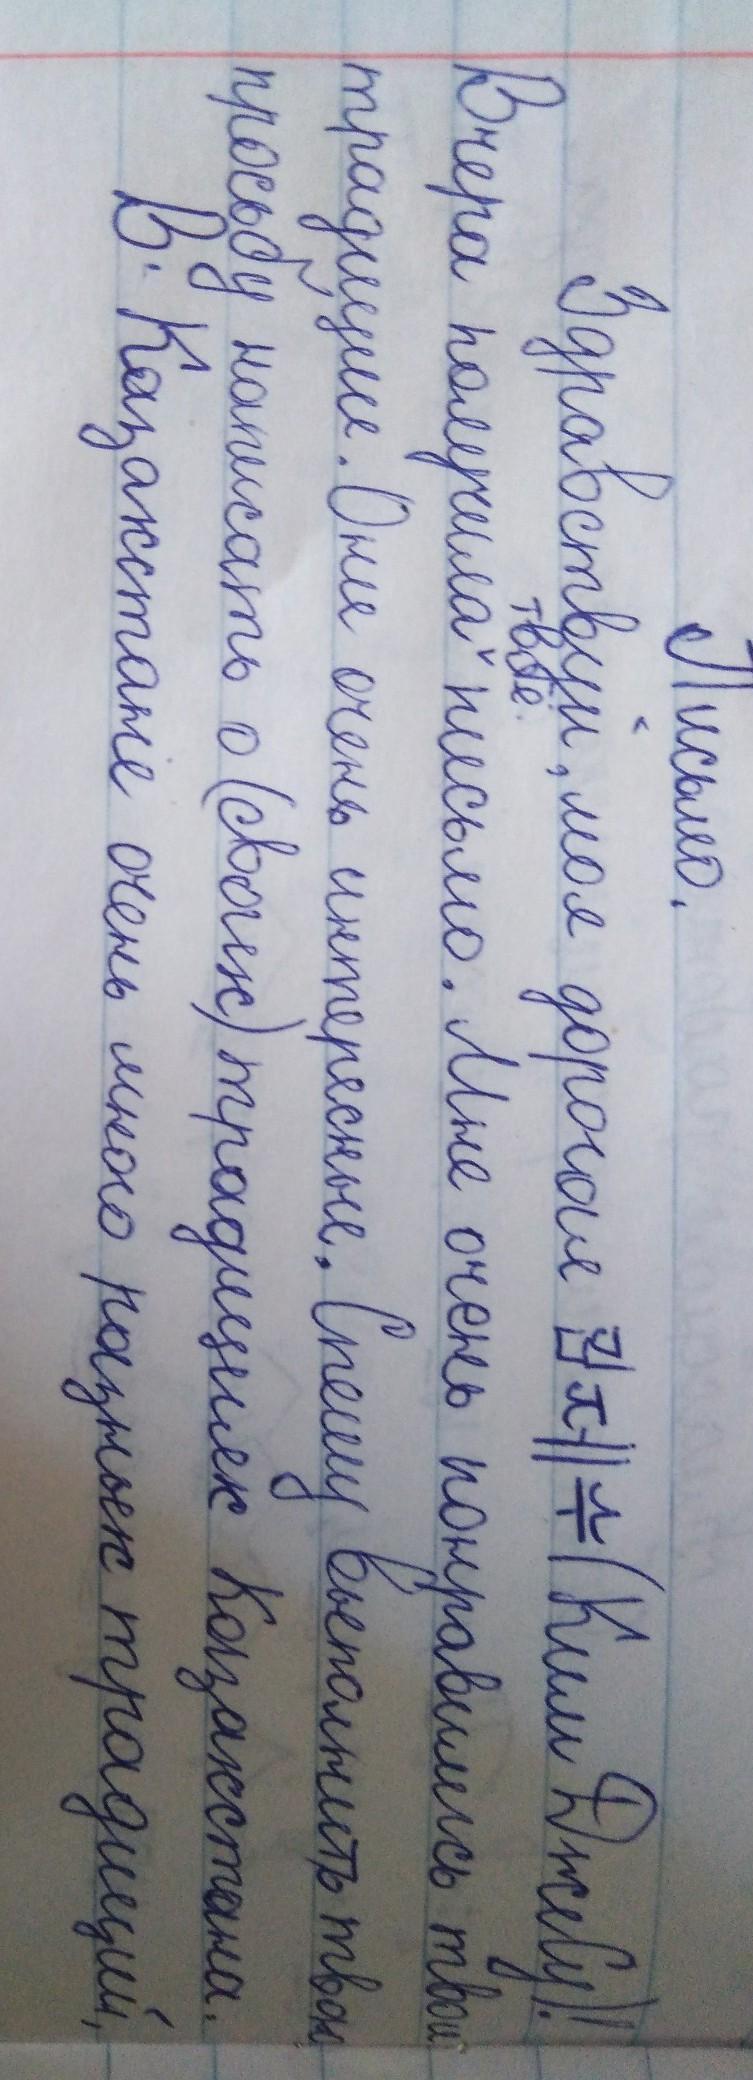 Письмо.
Здравствуй, моя дорогая (Ким Джебу)!
Вчера получила твоё письмо. Мне очень понравились твои
традиции. Они очень интересные. Спешу выполнить твою
просьбу написать о (своих) традициях Казахстана.
В. Казакстане очень много разных традиций,